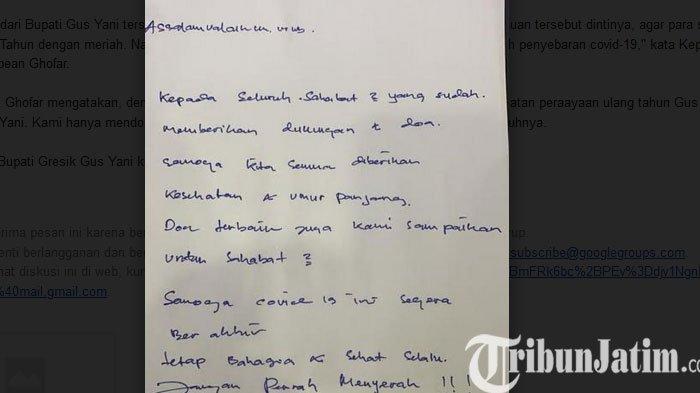 dari Bupati Gus Yani ters
uan tersebut dintinya, agar para s
Tahun dengan meriah. Na
h penyebaran covid-19," kata Kep
pean Ghofar.
Ghofar mengatakan, den
atan peraayaan ulang tahun Gus
Yani. Kami hanya mendo
uhnya.
Bupati Gresik Gus Yani k
erima pesan ini karena ber
rup.
enti berlangganan dan ber
subscribe@googlegroups.com
hat diskusi ini di web, kun
%40mail.gmail.com
Assalamualaikum. wrwb.
Kepada Seluruh Sahabat 2 yang sudah.
memberikan dukungan & doa.
Semoga kita semua diberikan
Kesehatan & umur panjang.
Doa terbaik juga kami sampaikan
untuk Sahabat 2
Semoga covid 19 ini segera
Berakhir
tetap Bahagia & Sehat Selalu.
Jangan Pernah Menyerah !!!
TribunJatim.co